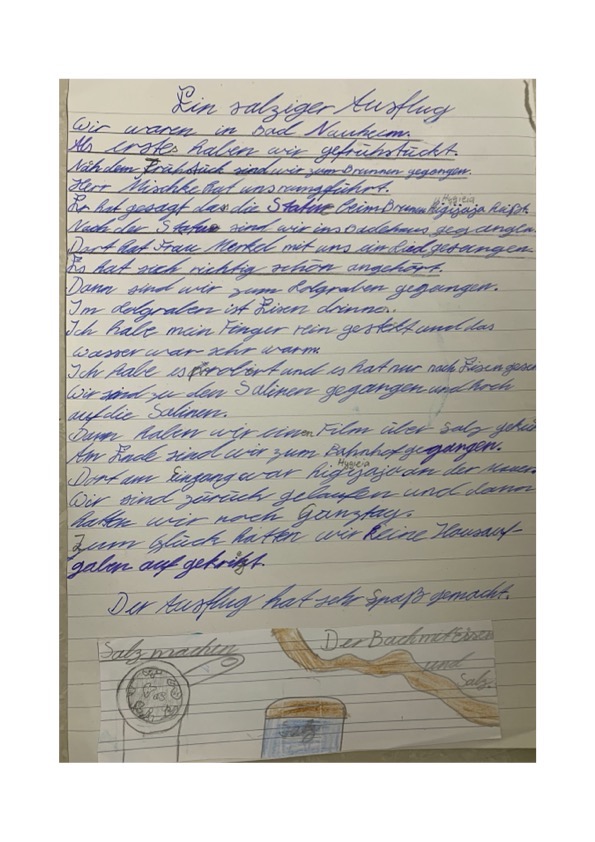 Ein salziger Ausflug
Wir waren in Bad Nauheim.
Als erstes haben wir gefrühstückt.
Nach dem Frühstück sind wir zum Brunnen gegangen.
Herr Mischke hat uns rumgeführt.
Hygieia
Er hat gesagt das die Statue beim Brunnen Higijaja heißt.
Nach der Statue sind wir ins Badehaus gegangen.
Dort hat Frau Merkel mit uns ein Lied gesungen.
Es hat sich richtig schön angehört.
Dann sind wir zum Holgraben gegangen.
Im Holgraben ist Eisen drinne.
Ich habe mein Finger rein gestelt und das
Wasser war sehr warm.
Ich habe es probiert und es hat nur nach Eisen
Wir sind zu den Salinen gegangen und hoch
auf die Salinen.
Dann haben wir einen Film über Salz
Am Ende sind wir zum Bahnhof gegangen.
Hygieia
Dort am Eingang war Higijaja an der Mauer.
Wir sind zurück gelaufen und dann
hatten wir noch Ganztag.
Zum Glück hatten wir keine Hausauf-
gaben auf gekrigt.
Der Ausflug hat sehr Spaß gemacht.
Salz machen
Der Bach mit Eisen
und
Salz.
Salz